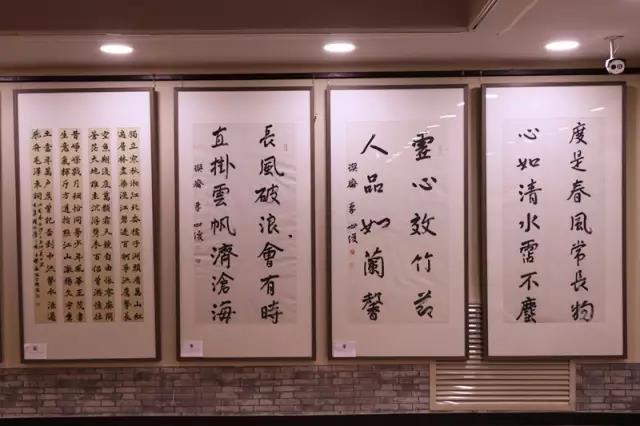 獨立寒秋湘江北去橘子洲頭看萬山紅
遍層林盡染漫江碧透百舸爭流鷹擊長
空魚翔淺底萬類霜天競自由悵寥廓問
蒼茫大地誰主沉浮攜來百侶曾遊憶往
昔崢嶸歲月稠恰同學少年風華正茂書
生意氣揮斥方遒指點江山激揚文字糞
土當年萬戶侯曾記否到中流擊水浪遏
飛舟毛澤東詞
長風破浪會有時
直掛雲帆濟滄海
靈心效竹節
人品如蘭馨
度是春風常長物
心如清水霑不塵